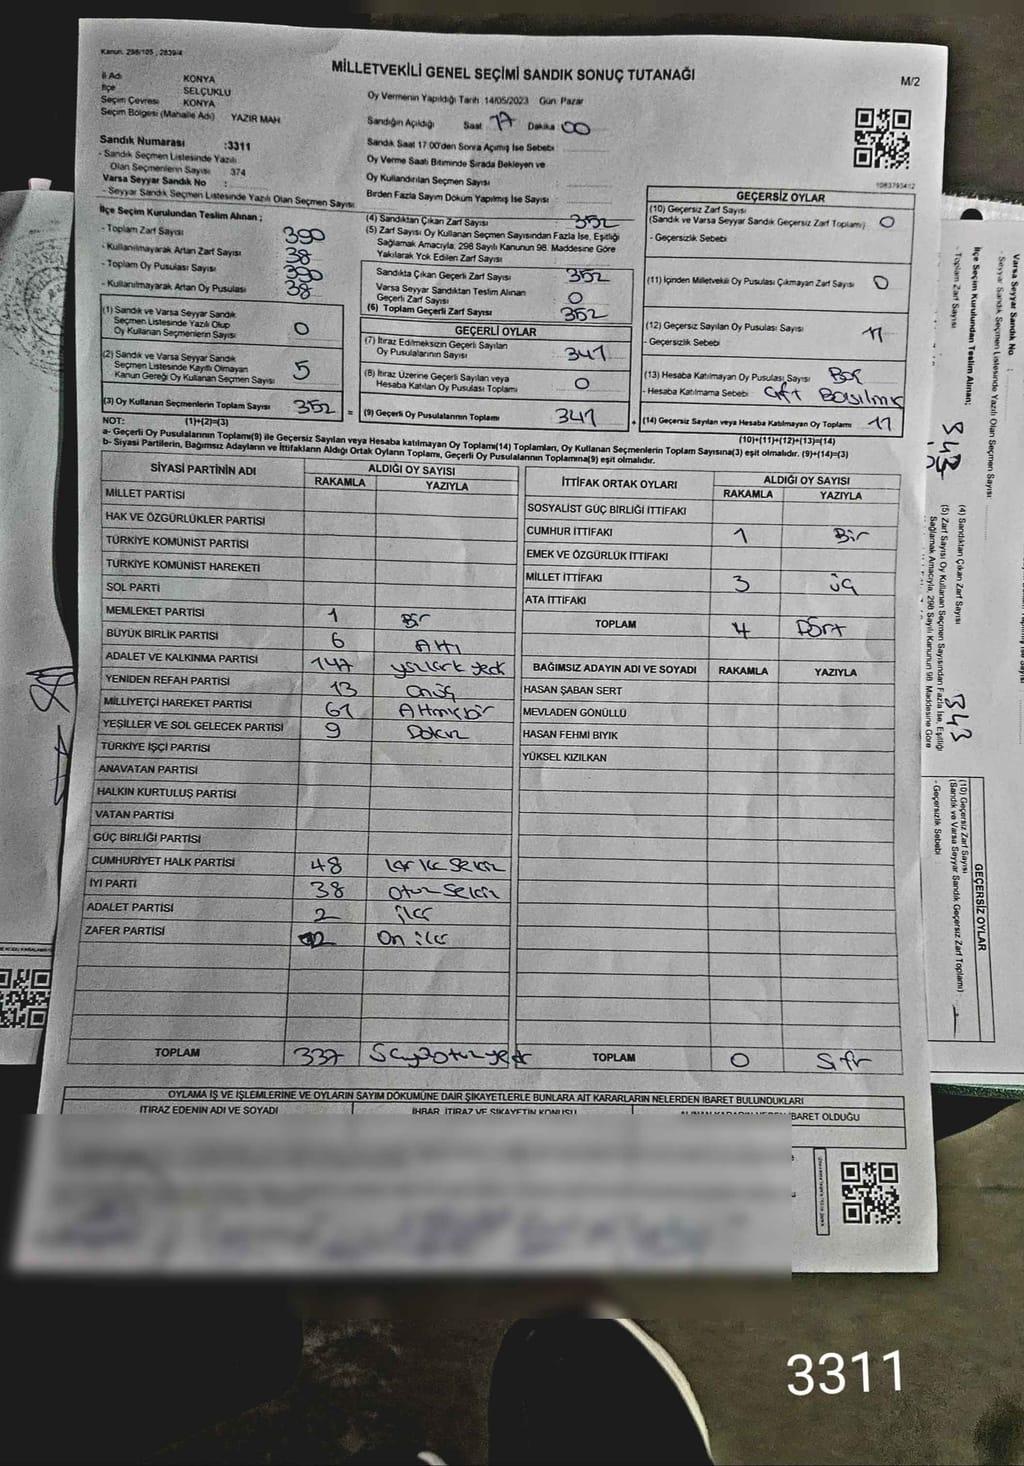 Kanun: 298/105, 2839/4
MİLLETVEKİLİ GENEL SEÇİMİ SANDIK SONUÇ TUTANAĞI
M/2
İl Adı KONYA
İlçe SELÇUKLU
Seçim Çevresi KONYA
Seçim Bölgesi (Mahalle Adı) YAZIR MAH
Sandık Numarası :3311
- Sandık Seçmen Listesinde Yazılı
Olan Seçmenlerin Sayısı : 374
Varsa Seyyar Sandık No :
- Seyyar Sandık Seçmen Listesinde Yazılı Olan Seçmen Sayısı:
Oy Vermenin Yapıldığı Tarih: 14/05/2023 Gün: Pazar
Sandığın Açıldığı Saat 17 Dakika 00
Sandık Saat 17:00'den Sonra Açılmış İse Sebebi
Oy Verme Saati Bitiminde Sırada Bekleyen ve
Oy Kullandırılan Seçmen Sayısı
Birden Fazla Sayım Döküm Yapılmış İse Sayısı
1083793412
İlçe Seçim Kurulundan Teslim Alınan ;
- Toplam Zarf Sayısı 390
- Kullanılmayarak Artan Zarf Sayısı 38
- Toplam Oy Pusulası Sayısı 390
- Kullanılmayarak Artan Oy Pusulası 38
(1) Sandık ve Varsa Seyyar Sandık
Seçmen Listesinde Yazılı Olup
Oy Kullanan Seçmenlerin Sayısı 0
(2) Sandık ve Varsa Seyyar Sandık
Seçmen Listesinde Kayıtlı Olmayan
Kanun Gereği Oy Kullanan Seçmen Sayısı 5
(3) Oy Kullanan Seçmenlerin Toplam Sayısı 352
(1)+(2)=(3)
(4) Sandıktan Çıkan Zarf Sayısı 352
(5) Zarf Sayısı Oy Kullanan Seçmen Sayısından Fazla İse, Eşitliği
Sağlamak Amacıyla, 298 Sayılı Kanunun 98. Maddesine Göre
Yakılarak Yok Edilen Zarf Sayısı
Sandıkta Çıkan Geçerli Zarf Sayısı 352
Varsa Seyyar Sandıktan Teslim Alınan
Geçerli Zarf Sayısı 0
(6) Toplam Geçerli Zarf Sayısı 352
GEÇERLİ OYLAR
(7) İtiraz Edilmeksizin Geçerli Sayılan
Oy Pusulalarının Sayısı 341
(8) İtiraz Üzerine Geçerli Sayılan veya
Hesaba Katılan Oy Pusulası Toplamı 0
= (9) Geçerli Oy Pusulalarının Toplamı 341
GEÇERSİZ OYLAR
(10) Geçersiz Zarf Sayısı
(Sandık ve Varsa Seyyar Sandık Geçersiz Zarf Toplamı) 0
- Geçersizlik Sebebi
(11) İçinden Milletvekili Oy Pusulası Çıkmayan Zarf Sayısı 0
(12) Geçersiz Sayılan Oy Pusulası Sayısı 11
- Geçersizlik Sebebi
(13) Hesaba Katılmayan Oy Pusulası Sayısı Boş
- Hesaba Katılmama Sebebi Çift Basılmış
+ (14) Geçersiz Sayılan veya Hesaba Katılmayan Oy Toplamı 11
(10)+(11)+(12)+(13)=(14)
NOT:
a- Geçerli Oy Pusulalarının Toplamı(9) ile Geçersiz Sayılan veya Hesaba katılmayan Oy Toplamı(14) Toplamları, Oy Kullanan Seçmenlerin Toplam Sayısına(3) eşit olmalıdır. (9)+(14)=(3)
b- Siyasi Partilerin, Bağımsız Adayların ve İttifakların Aldığı Ortak Oyların Toplamı, Geçerli Oy Pusulalarının Toplamına(9) eşit olmalıdır.
SİYASİ PARTİNİN ADI ALDIĞI OY SAYISI
RAKAMLA YAZIYLA
MİLLET PARTİSİ
HAK VE ÖZGÜRLÜKLER PARTİSİ
TÜRKİYE KOMÜNİST PARTİSİ
TÜRKİYE KOMÜNİST HAREKETİ
SOL PARTİ
MEMLEKET PARTİSİ 1 Bir
BÜYÜK BİRLİK PARTİSİ 6 Altı
ADALET VE KALKINMA PARTİSİ 147 yüzkırk yedi
YENİDEN REFAH PARTİSİ 13 onüç
MİLLİYETÇİ HAREKET PARTİSİ 61 Altmışbir
YEŞİLLER VE SOL GELECEK PARTİSİ 9 Dokuz
TÜRKİYE İŞÇİ PARTİSİ
ANAVATAN PARTİSİ
HALKIN KURTULUŞ PARTİSİ
VATAN PARTİSİ
GÜÇ BİRLİĞİ PARTİSİ
CUMHURİYET HALK PARTİSİ 48 kırk sekiz
İYİ PARTİ 38 otuz sekiz
ADALET PARTİSİ 2 iki
ZAFER PARTİSİ 12 On iki
TOPLAM 337 üçyüzotuzyedi
İTTİFAK ORTAK OYLARI ALDIĞI OY SAYISI
RAKAMLA YAZIYLA
SOSYALİST GÜÇ BİRLİĞİ İTTİFAKI
CUMHUR İTTİFAKI 1 Bir
EMEK VE ÖZGÜRLÜK İTTİFAKI
MİLLET İTTİFAKI 3 üç
ATA İTTİFAKI
TOPLAM 4 Dört
BAĞIMSIZ ADAYIN ADI VE SOYADI RAKAMLA YAZIYLA
HASAN ŞABAN SERT
MEVLADEN GÖNÜLLÜ
HASAN FEHMİ BIYIK
YÜKSEL KIZILKAN
TOPLAM 0 Sıfır
OYLAMA İŞ VE İŞLEMLERİNE VE OYLARIN SAYIM DÖKÜMÜNE DAİR ŞİKAYETLERLE BUNLARA AİT KARARLARIN NELERDEN İBARET BULUNDUKLARI
İTİRAZ EDENİN ADI VE SOYADI İHBAR, İTİRAZ VE ŞİKAYETİN KONUSU İBARET OLDUĞU
Varsa Seyyar Sandık No :
- Seyyar Sandık Seçmen Listesinde Yazılı Olan Seçmen Sayısı:
İlçe Seçim Kurulundan Teslim Alınan;
- Toplam Zarf Sayısı
(4) Sandıktan Çıkan Zarf Sayısı 343
(5) Zarf Sayısı Oy Kullanan Seçmen Sayısından Fazla İse, Eşitliği
Sağlamak Amacıyla, 298 Sayılı Kanunun 98. Maddesine Göre
GEÇERSİZ OYLAR
(10) Geçersiz Zarf Sayısı
(Sandık ve Varsa Seyyar Sandık Geçersiz Zarf Toplamı)
- Geçersizlik Sebebi
3311